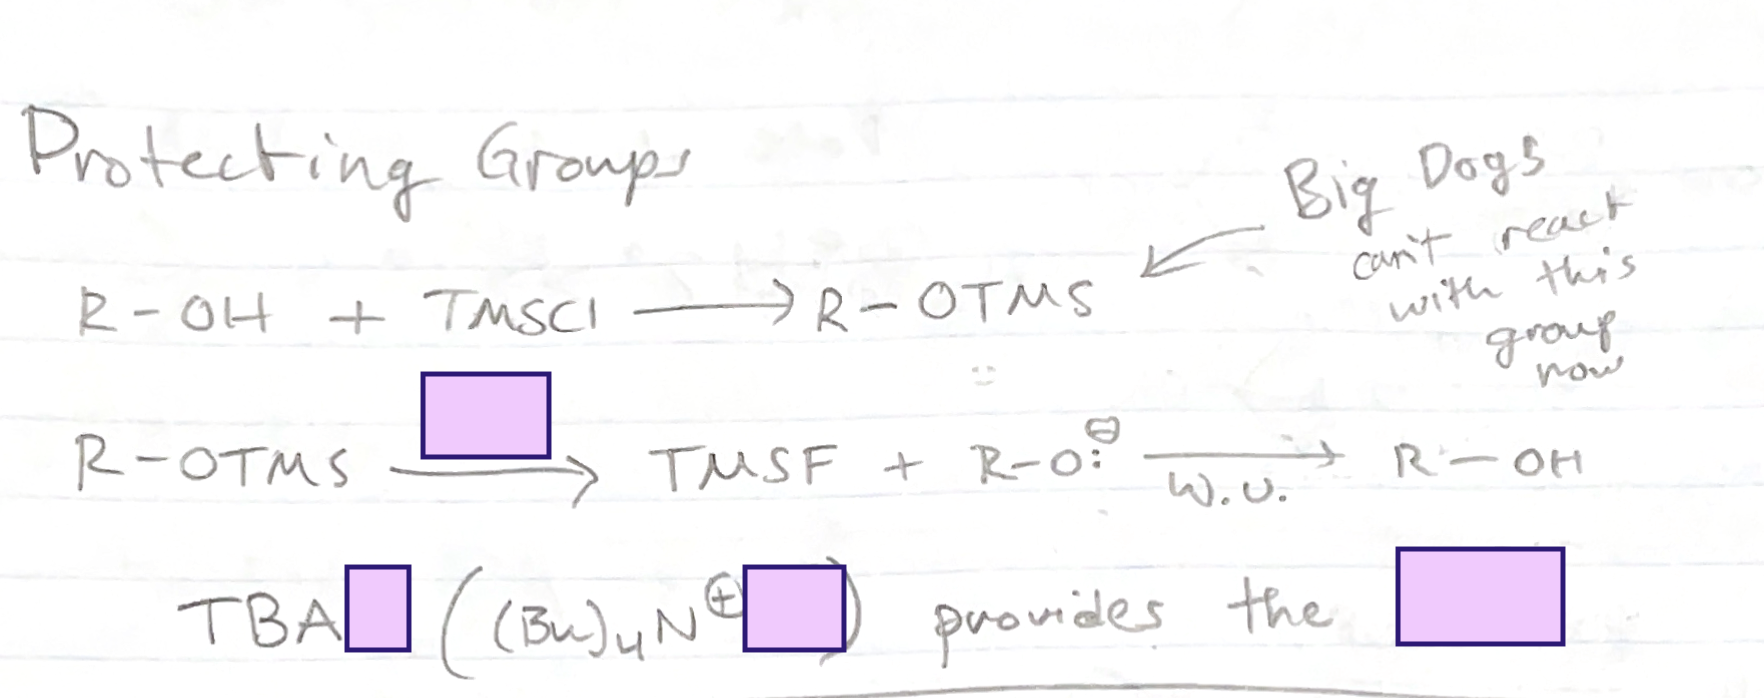 Protecting Groups
Big Dogs
can't react
with this
group
now
R-OH + TMSCl ⟶ R-OTMS
R-OTMS ⟶ TMSF + R-O:⊖ ⟶ R-OH
W.U.
TBA ((Bu)4N⊕ ) provides the